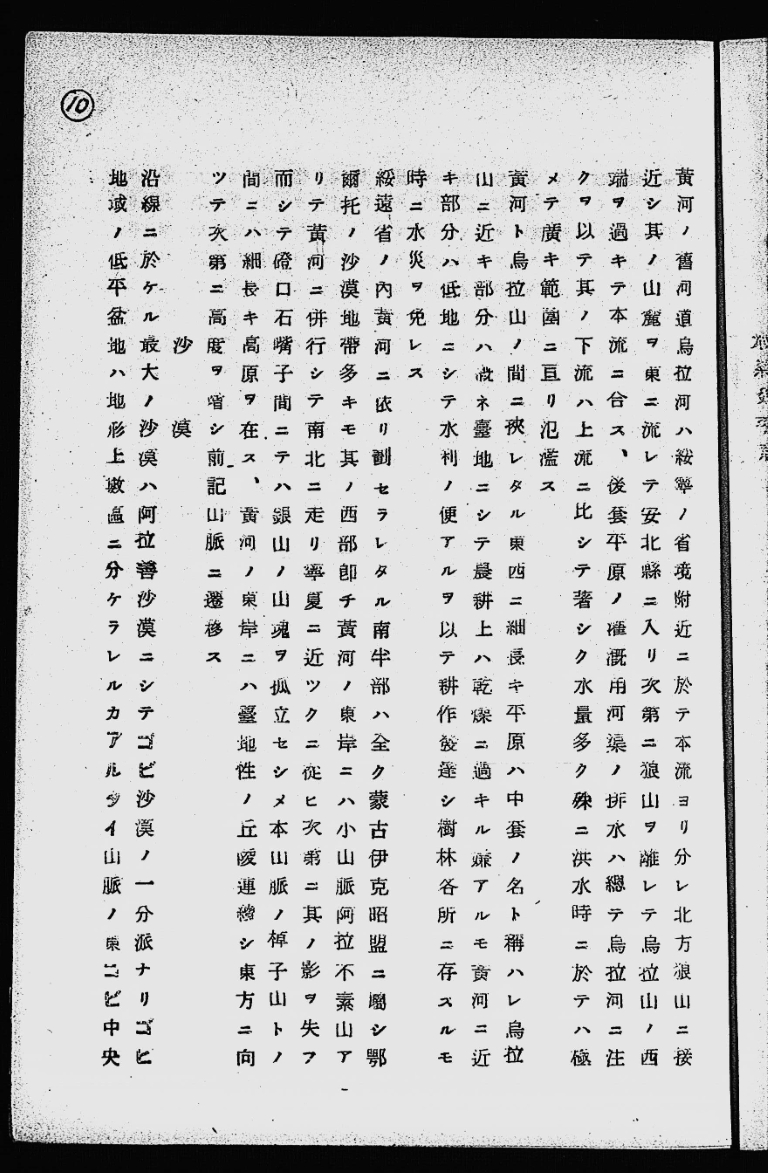 10
黄河ノ舊河道烏拉河ハ綏寧ノ省境附近ニ於テ本流ヨリ分レ北方狼山ニ接
近シ其ノ山麓ヲ東ニ流レテ安北縣ニ入リ次第ニ狼山ヲ離レテ烏拉山ノ西
端ヲ過キテ本流ニ合ス、後套平原ノ灌漑用河渠ノ排水ハ總テ烏拉河ニ注
クヲ以テ其ノ下流ハ上流ニ比シテ著シク水量多ク殊ニ洪水時ニ於テハ極
メテ廣キ範圍ニ亘リ氾濫ス
黄河ト烏拉山ノ間ニ夾レタル東西ニ細長キ平原ハ中套ノ名ト稱ハレ烏拉
山ニ近キ部分ハ概ネ臺地ニシテ農耕上ハ乾燥ニ過キル嫌アルモ黄河ニ近
キ部分ハ低地ニシテ水利ノ便アルヲ以テ耕作發達シ樹林各所ニ存スルモ
時ニ水災ヲ免レス
綏遠省ノ內黄河ニ依リ劃セラレタル南半部ハ全ク蒙古伊克昭盟ニ屬シ鄂
爾托ノ沙漠地帶多キモ其ノ西部卽チ黄河ノ東岸ニハ小山脈阿拉不素山ア
リテ黄河ニ併行シテ南北ニ走リ寧夏ニ近ツクニ從ヒ次第ニ其ノ影ヲ失フ
而シテ磴口石嘴子間ニテハ銀山ノ山魂ヲ孤立セシメ本山脈ノ棹子山トノ
間ニハ細長キ高原ヲ在ス、黄河ノ東岸ニハ臺地性ノ丘陵連續シ東方ニ向
ツテ次第ニ高度ヲ增シ前記山脈ニ遷移ス
沙漠
沿線ニ於ケル最大ノ沙漠ハ阿拉善沙漠ニシテゴビ沙漠ノ一分派ナリゴビ
地域ノ低平盆地ハ地形上數區ニ分ケラレルカアルタイ山脈ノ東ゴビ中央